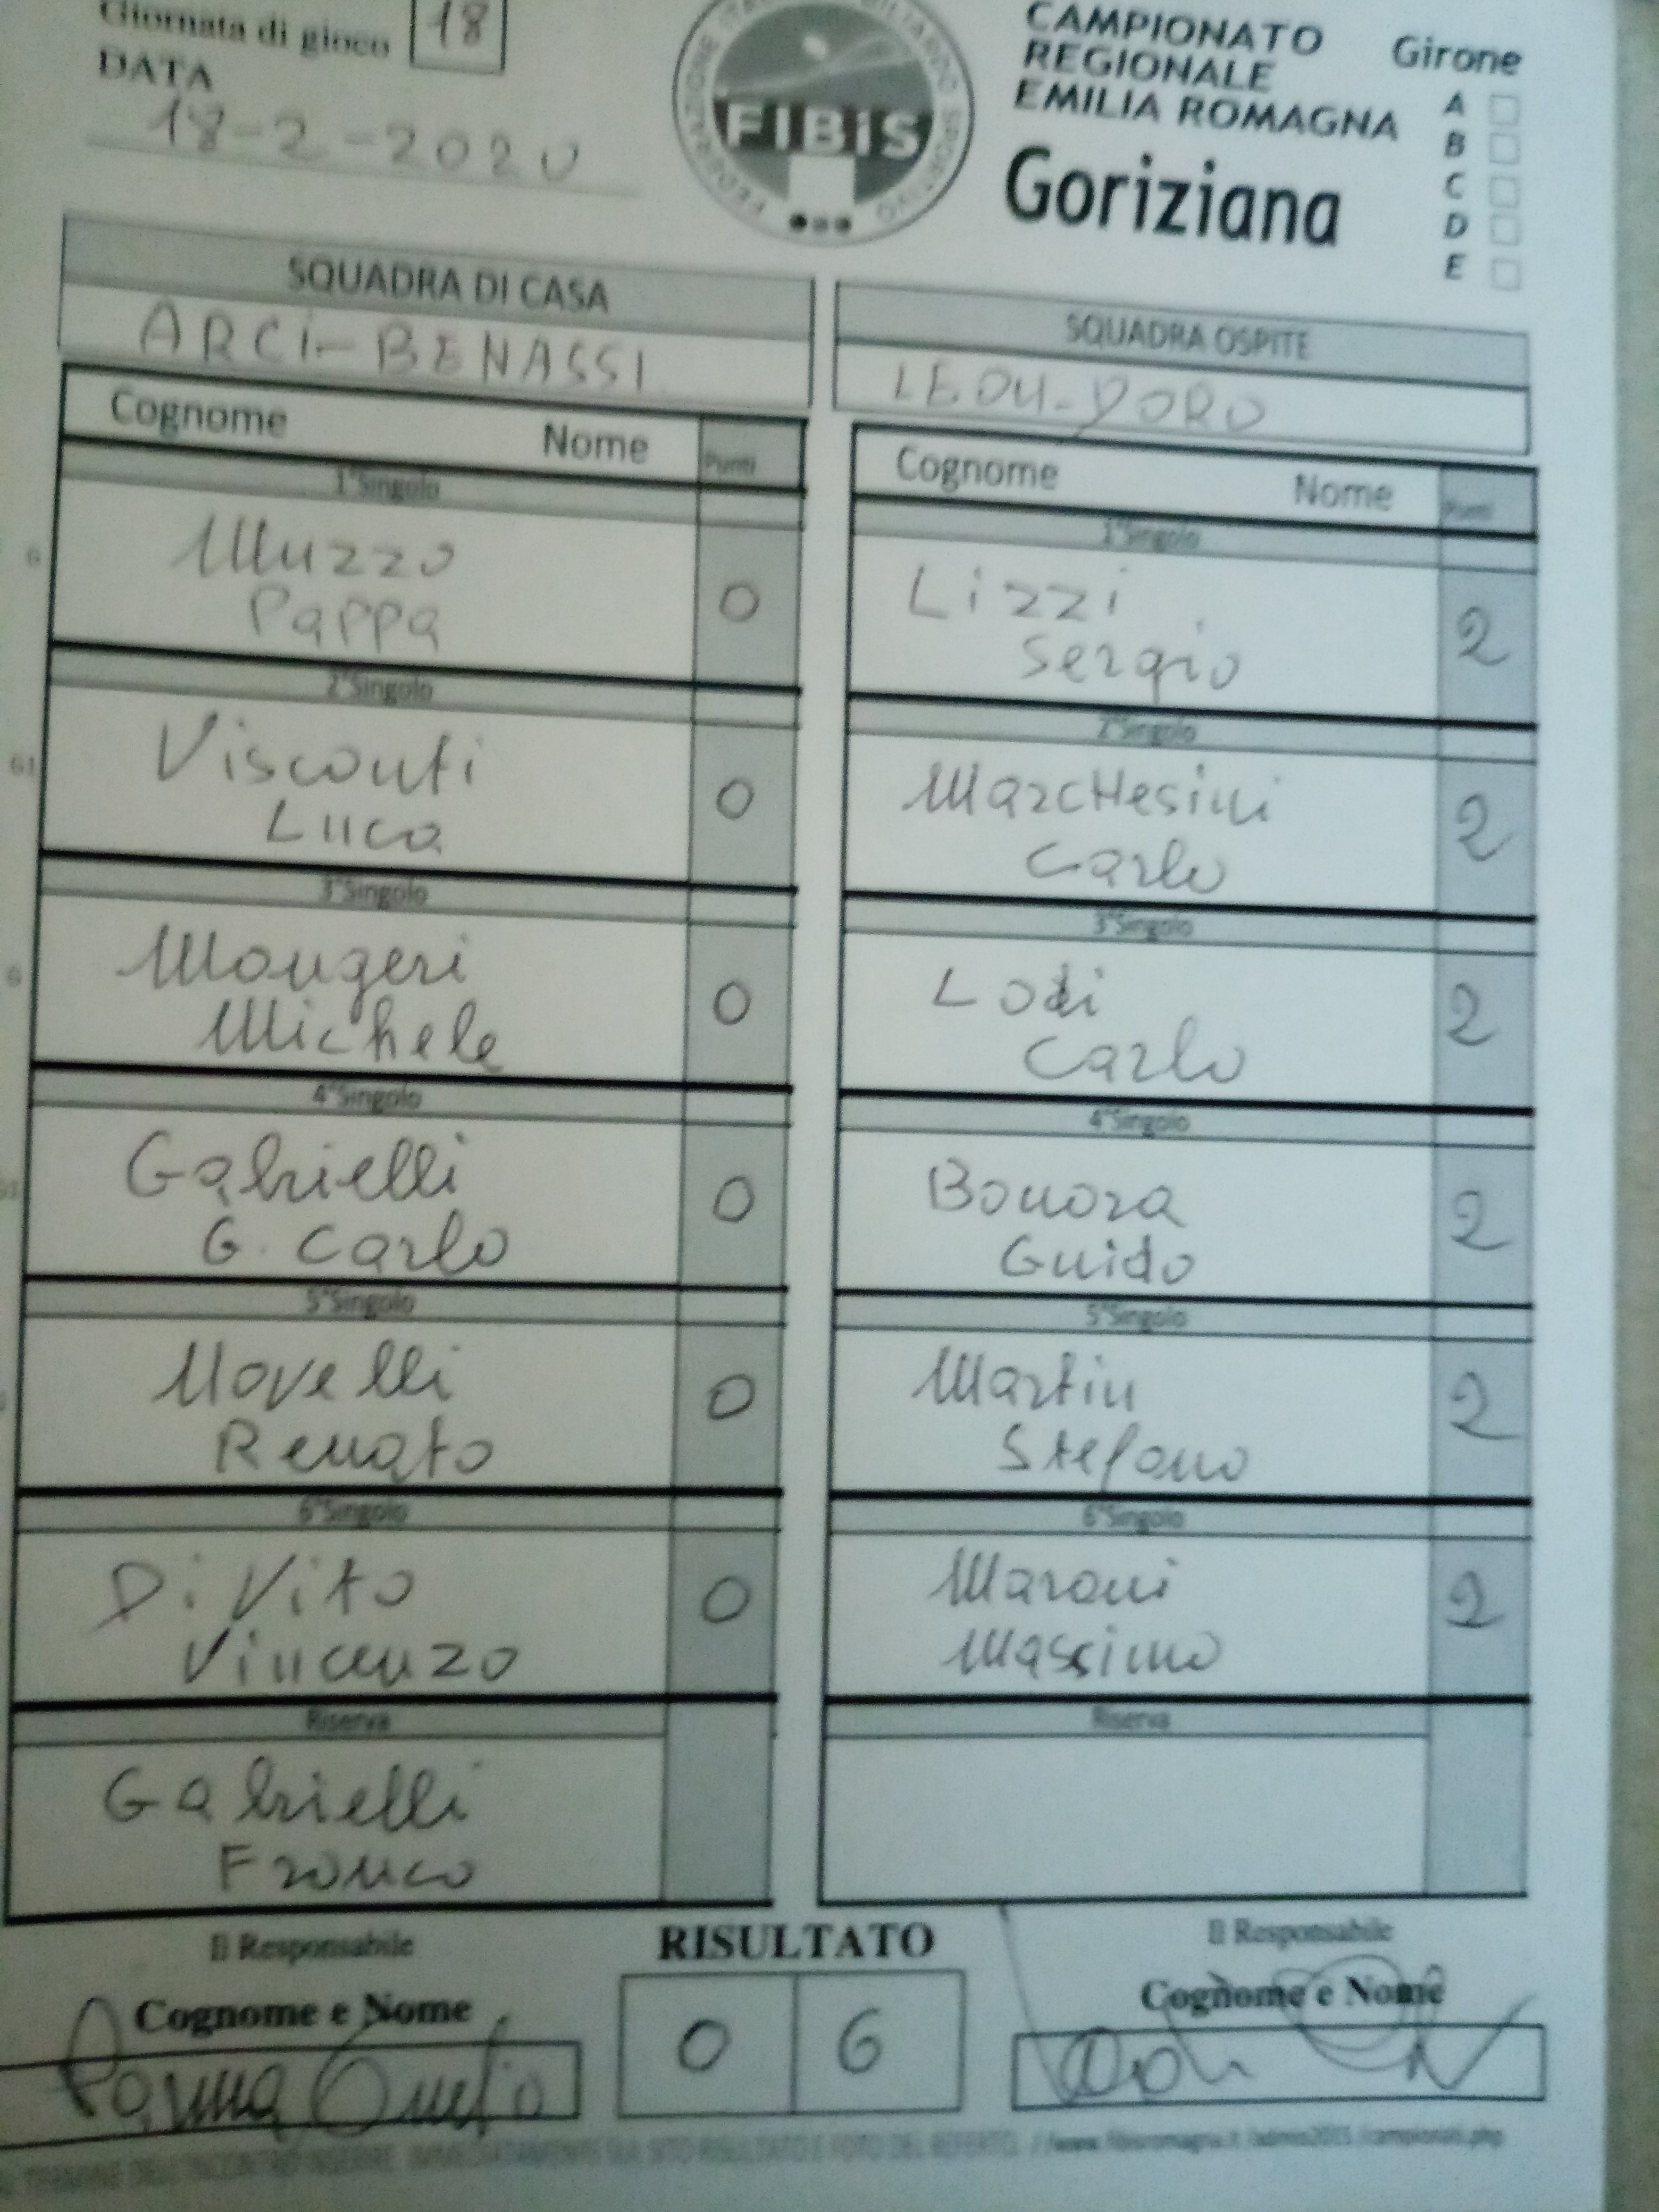 Giornata di gioco 18
DATA
18-2-2020
FIBiS
CAMPIONATO
REGIONALE
EMILIA ROMAGNA
Goriziana
Girone
A
B
C
D
E
SQUADRA DI CASA
ARCI-BENASSI
Cognome Nome Punti
1°Singolo
Muzzo
Pappa
0
2°Singolo
Visconti
Luca
0
3°Singolo
Mougeri
Michele
0
4°Singolo
Gabrielli
G. Carlo
0
5°Singolo
Novelli
Renato
0
6°Singolo
Di Vito
Vincenzo
0
Riserva
Gabrielli
Franco
SQUADRA OSPITE
LEON-DORO
Cognome Nome Punti
1°Singolo
Lizzi
Sergio
2
2°Singolo
MarcHesini
Carlo
2
3°Singolo
Lodi
Carlo
2
4°Singolo
Bonora
Guido
2
5°Singolo
Martin
Stefano
2
6°Singolo
Maroni
Massimo
2
Riserva
Il Responsabile
Cognome e Nome
Parma
RISULTATO
0 6
Il Responsabile
Cognome e Nome